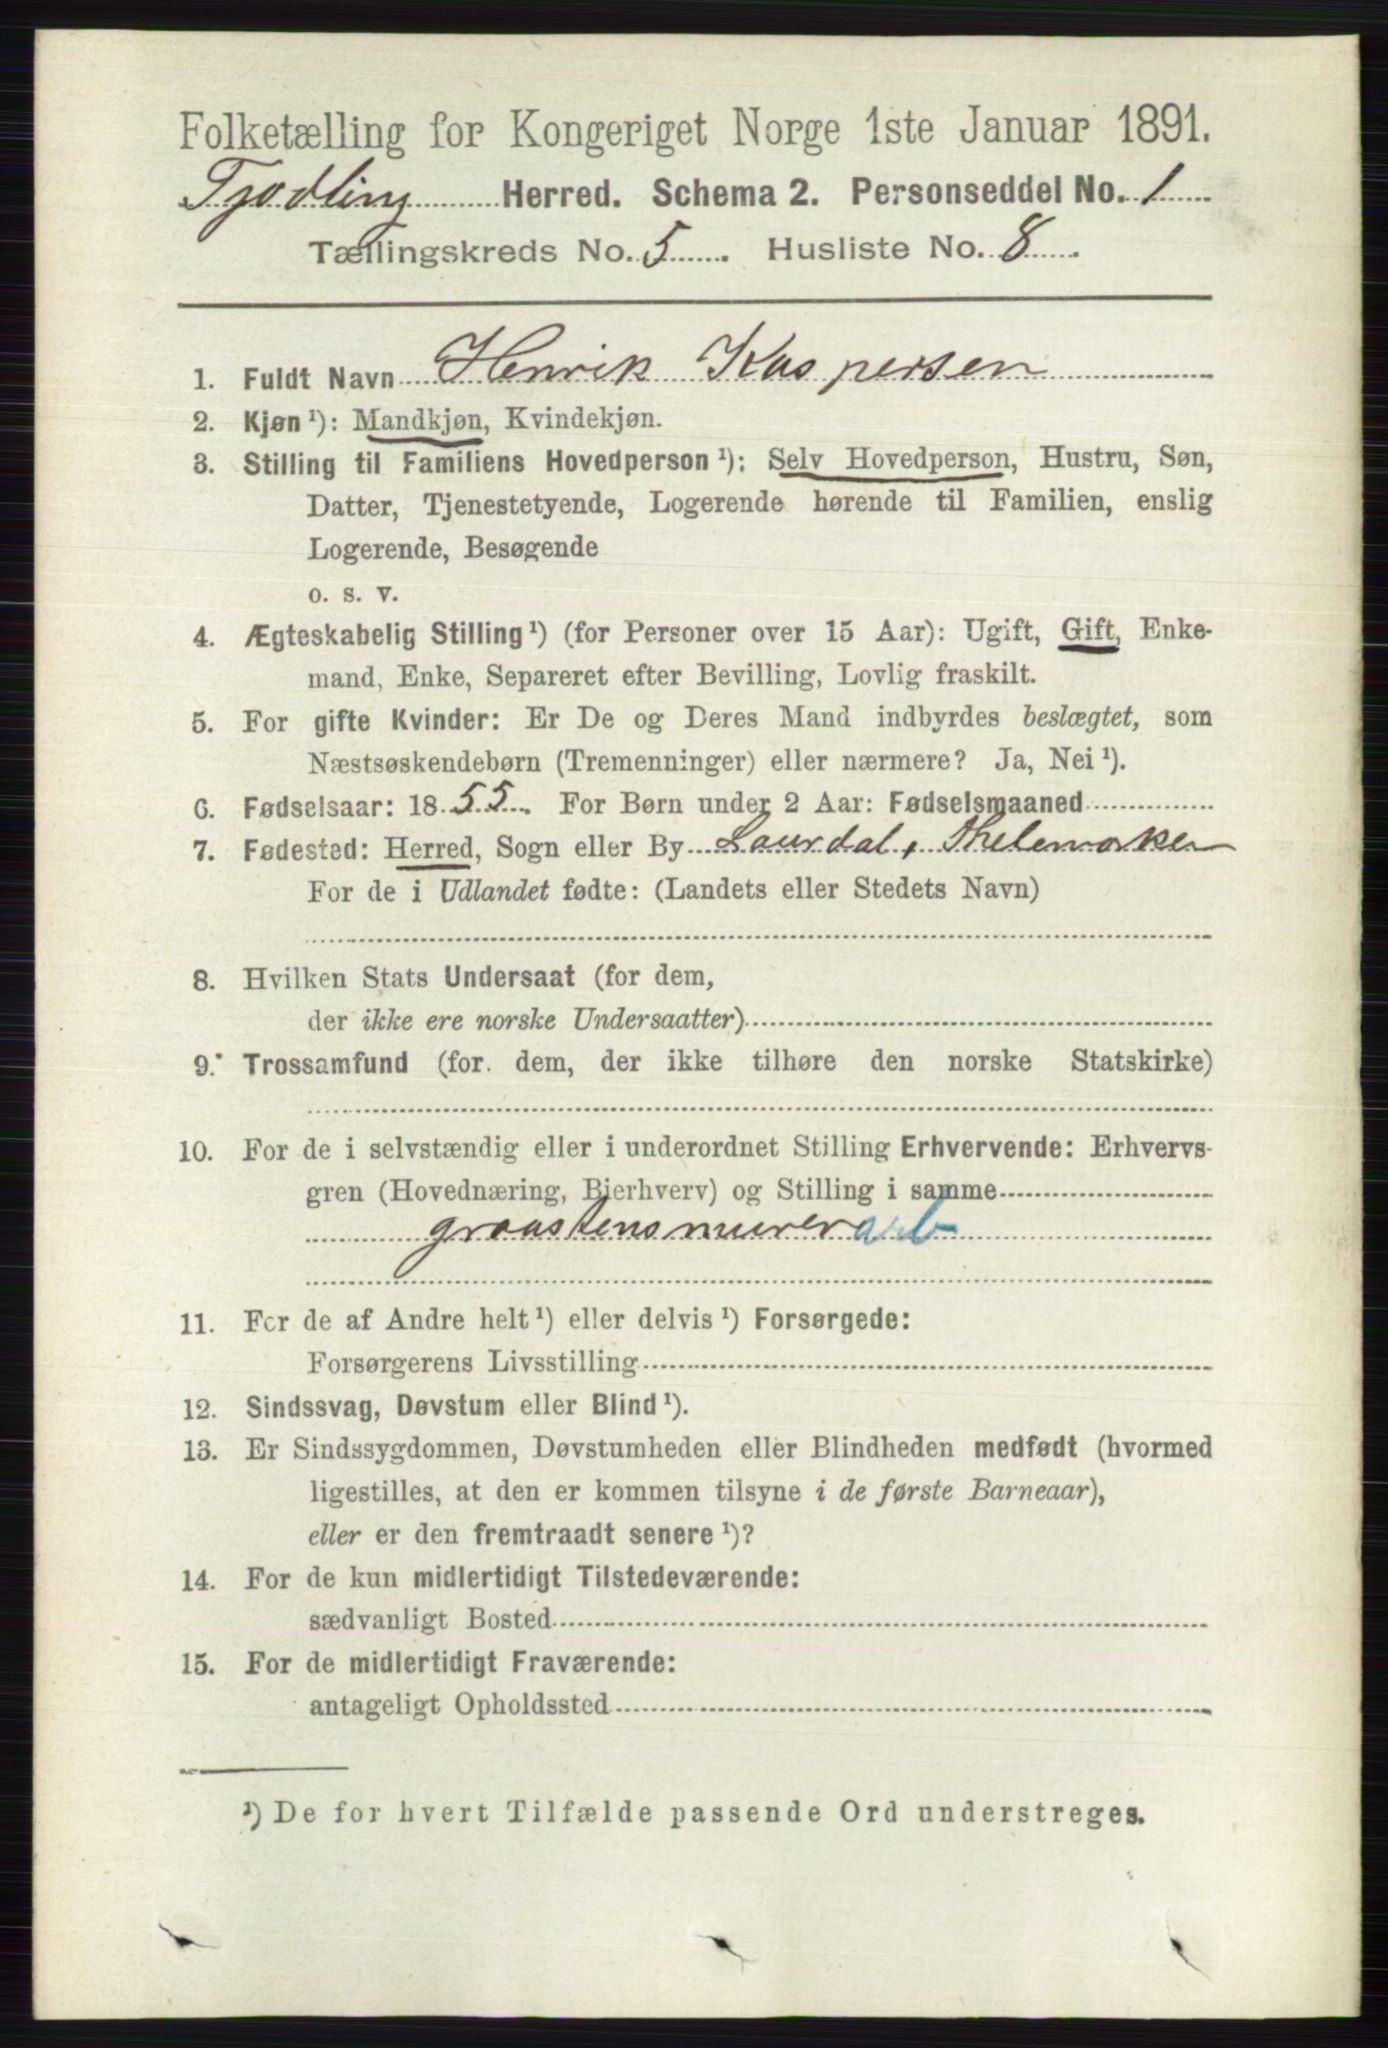 Folketælling for Kongeriget Norge 1ste Januar 1891.
Tjødling Herred. Schema 2. Personseddel No. 1
Tællingskreds No. 5. Husliste No. 8.
1. Fuldt Navn Henrik Kaspersen
2. Kjøn ¹): Mandkjøn, Kvindekjøn.
3. Stilling til Familiens Hovedperson ¹): Selv Hovedperson, Hustru, Søn,
Datter, Tjenestetyende, Logerende hørende til Familien, enslig
Logerende, Besøgende
o. s. v.
4. Ægteskabelig Stilling ¹) (for Personer over 15 Aar): Ugift, Gift, Enke-
mand, Enke, Separeret efter Bevilling, Lovlig fraskilt.
5. For gifte Kvinder: Er De og Deres Mand indbyrdes beslægtet, som
Næstsøskendebørn (Tremenninger) eller nærmere? Ja, Nei ¹).
6. Fødselsaar: 1855. For Børn under 2 Aar: Fødselsmaaned
7. Fødested: Herred, Sogn eller By Laurdal, Thelemarken
For de i Udlandet fødte: (Landets eller Stedets Navn)
8. Hvilken Stats Undersaat (for dem,
der ikke ere norske Undersaatter)
9. Trossamfund (for dem, der ikke tilhøre den norske Statskirke)
10. For de i selvstændig eller i underordnet Stilling Erhvervende: Erhvervs-
gren (Hovednæring, Bierhverv) og Stilling i samme
graastensmurerarb
11. For de af Andre helt ¹) eller delvis ¹) Forsørgede:
Forsørgerens Livsstilling
12. Sindssvag, Døvstum eller Blind ¹).
13. Er Sindssygdommen, Døvstumheden eller Blindheden medfødt (hvormed
ligestilles, at den er kommen tilsyne i de første Barneaar),
eller er den fremtraadt senere ¹)?
14. For de kun midlertidigt Tilstedeværende:
sædvanligt Bosted
15. For de midlertidigt Fraværende:
antageligt Opholdssted
¹) De for hvert Tilfælde passende Ord understreges.